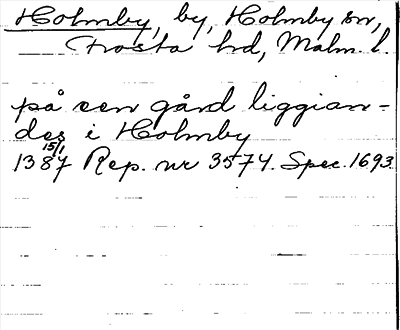 Holmby, by, Holmby sn,
Frosta hd, Malm. l.
på een gård liggian-
des i Holmby
15/1
1387 Rep. nr 3574. Spec. 1693